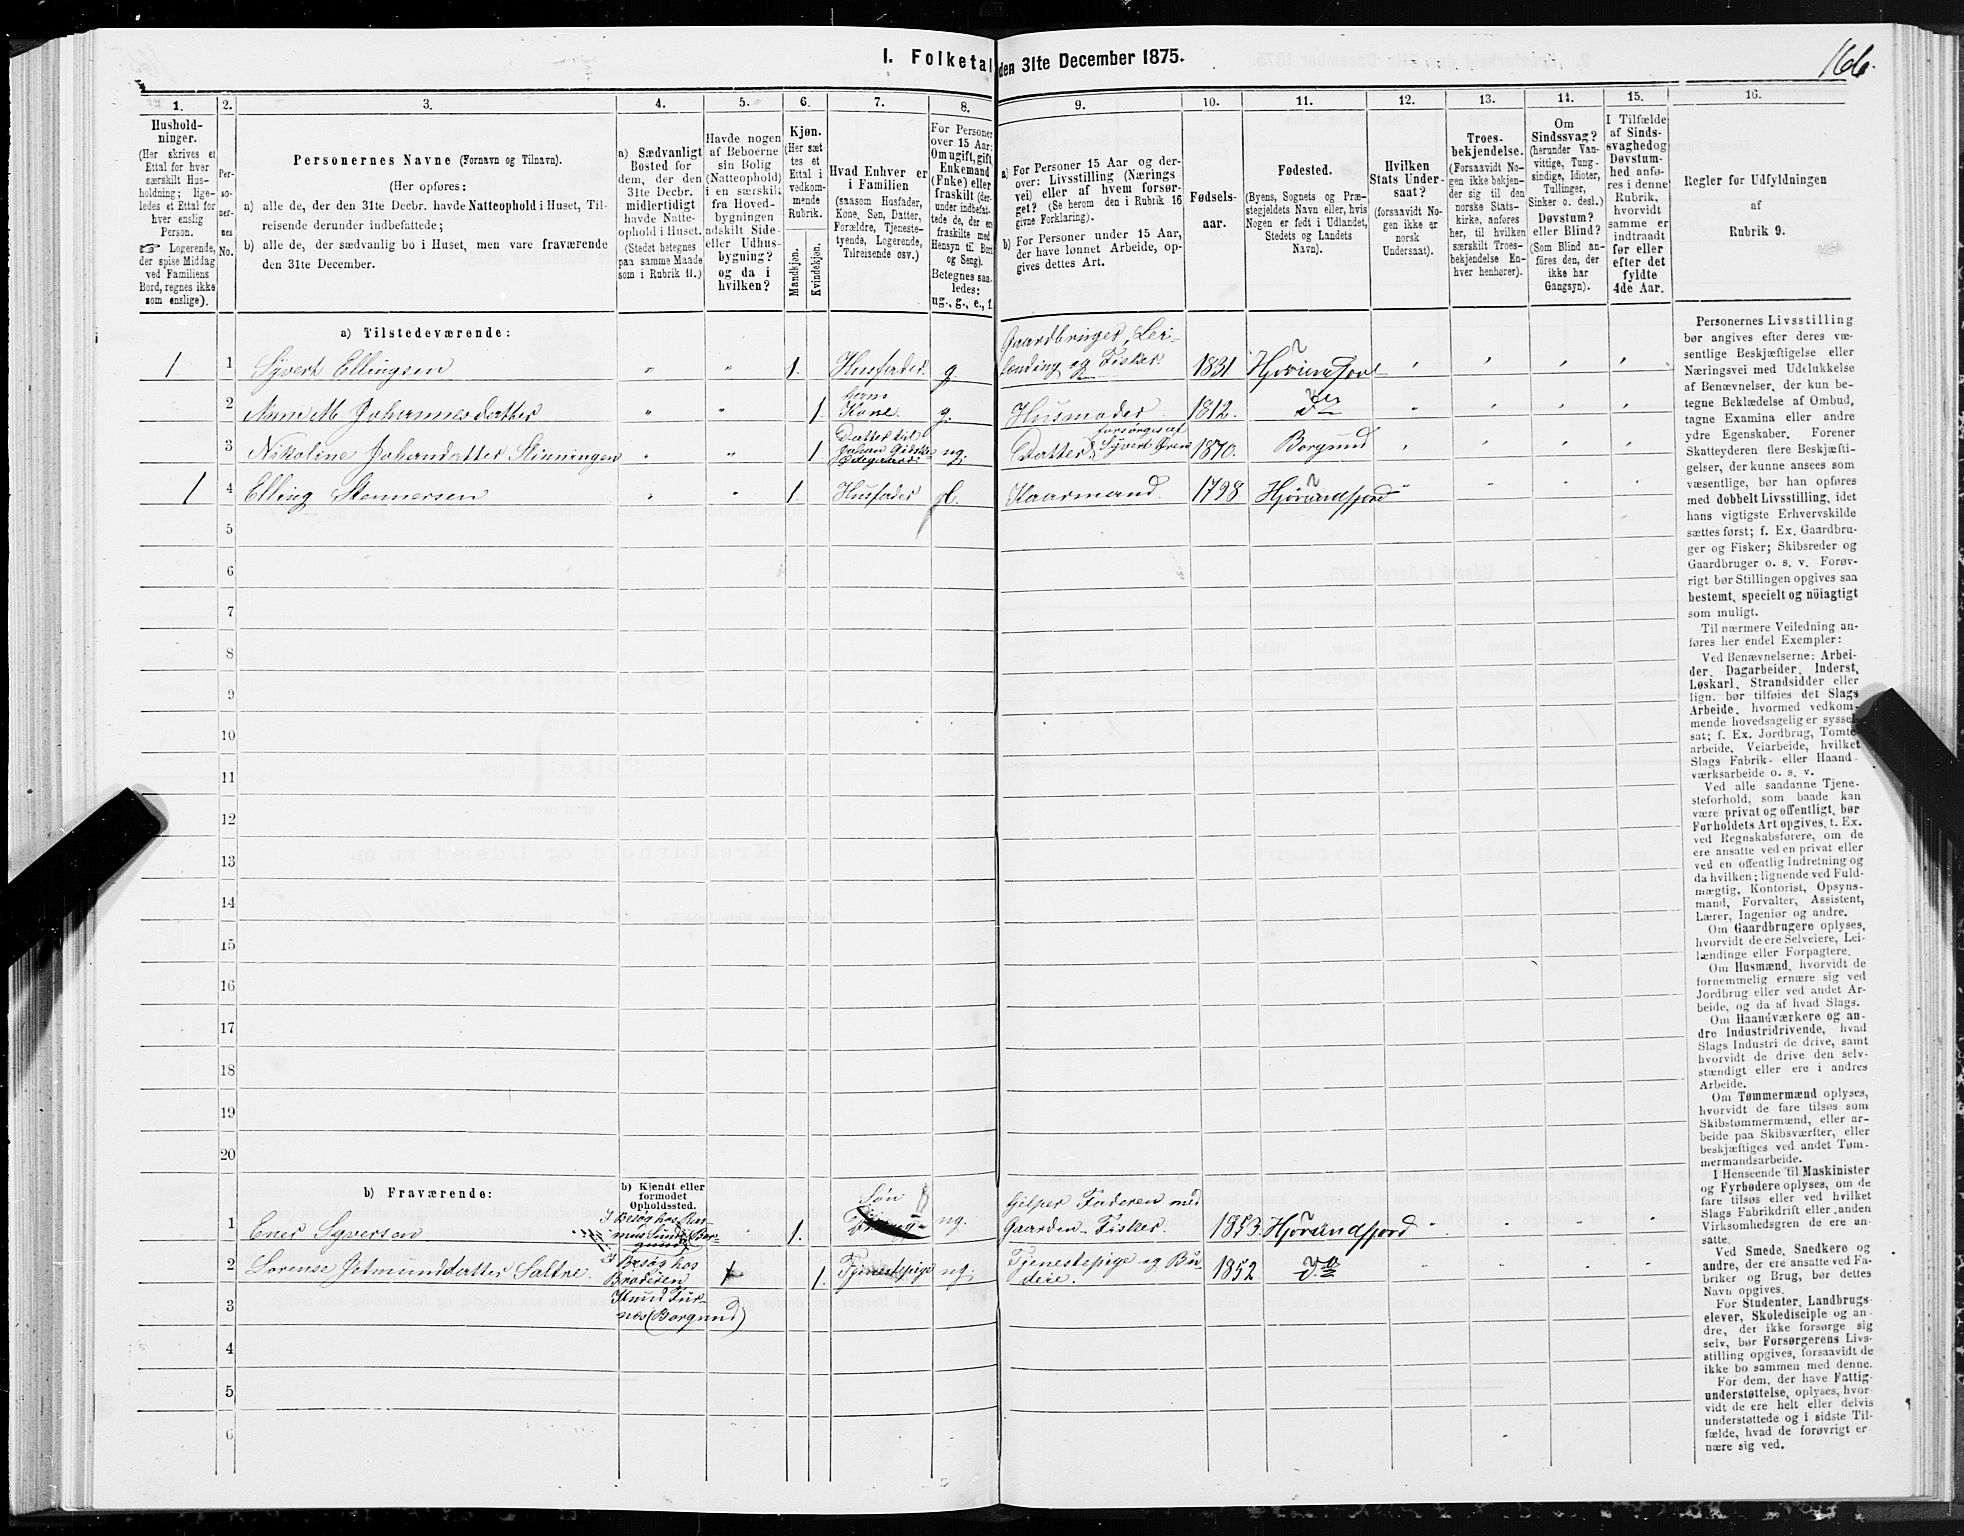 I. Folketal den 31te December 1875.
166.
1.
2.
3.
4.
5.
6.
7.
8.
9.
10.
11.
12.
13.
14.
15.
16.
Hushold-
ninger.
(Her skrives et
Ettal for hver
særskilt Hus-
holdning; lige-
ledes et Ettal for
hver enslig
Person.
☞ Logerende,
der spise Middag
ved Familiens
Bord, regnes ikke
som enslige).
Per-
so-
ner-
nes
No.
Personernes Navne (Fornavn og Tilnavn).
(Her opføres:
a) alle de, der den 31te Decbr. havde Natteophold i Huset, Til-
reisende derunder indbefattede;
b) alle de, der sædvanlig bo i Huset, men vare fraværende
den 31te December.
a) Sædvanligt
Bosted for
dem, der den
31te Decbr.
midlertidigt
havde Natte-
ophold i Huset.
(Stedet betegnes
paa samme Maade
som i Rubrik 11.)
Havde nogen
af Beboerne
sin Bolig
(Natteophold)
i en særskilt
fra Hoved-
bygningen
adskilt Side-
eller Udhus-
bygning?
og da i
hvilken?
Kjøn.
(Her sæt-
tes et
Ettal i
vedkom-
mende
Rubrik.
Mandkjøn.
Kvindekjøn.
Hvad Enhver er
i Familien
(saasom Husfader,
Kone, Søn, Datter,
Forældre, Tjeneste-
tyende, Logerende,
Tilreisende osv.)
For Personer
over 15 Aar:
Om ugift, gift,
Enkemand
(Enke) eller
fraskilt (der-
under indbefat-
tede de, der ere
fraskilte med
Hensyn til Bord
og Seng).
Betegnes saa-
ledes:
ug., g., e., f.
a) For Personer 15 Aar og der-
over: Livsstilling (Nærings
vei) eller af hvem forsør-
get? (Se herom den i Rubrik 16
givne Forklaring).
b) For Personer under 15 Aar,
der have lønnet Arbeide, op-
gives dettes Art.
Fødsels-
aar.
Fødested.
(Byens, Sognets og Præ-
stegjeldets Navn eller, hvis
Nogen er født i Udlandet,
Stedets og Landets
Navn).
Hvilken
Stats Under-
saat?
(forsaavidt No-
gen ikke er
norsk
Undersaat).
Troes-
bekjendelse.
(Forsaavidt No-
gen ikke bekjen-
der sig til den
norske Stats-
kirke, anføres
her, til hvilken
særskilt Troes-
bekjendelse En-
hver henhører).
Om
Sindssvag?
(herunder Van-
vittige, Tung-
sindige, Idioter,
Tullinger,
Sinker o. desl.)
Døvstum?
eller Blind?
(Som Blind an-
føres den, der
ikke har
Gangsyn).
I Tilfælde
af Sinds-
svaghed og
Døvstum-
hed anfø-
res i denne
Rubrik,
hvorvidt
samme er
indtraadt
før eller
efter det
fyldte
4de Aar.
Regler for Udfyldningen
af
Rubrik 9.
a) Tilstedeværende:
1 1 Syvert Ellingsen " " 1. Husfader g. Gaardbruger, Lei-
lænding og Fisker. 1831 Hjørundfjord
2 Anne M. Johannesdatter " " 1. hans Kone. g. Husmoder. 1812. do
3 Nikoline Johandatter Slinningen " " 1 Datter til Johan ug. Datter, forsørges af Syvert 1870. Borgund
1 4 Elling Stennersen " " 1. Husfader Kaarmand. 1798 Hjørundfjord
5
6
7
8
9
10
11
12
13
14
15
16
17
18
19
20
b) Fraværende:
b) Kjendt eller
formodet
Opholdssted.
1 Ener Syversen I Besøg hos 1. Søn ug. hjelper Faderen med
Gaarden. Fisker. 1853. Hjørundfjord
2 Lorense Jetmunddatter Sætre. I Besøg hos
Broderen 1. Tjenestepige ug. Tjenestepige og Bu-
deie. 1852 do
3 Knud Fur-
nes (Borgund)
4
5
6
Personernes Livsstilling
bør angives efter deres væ-
sentlige Beskjæftigelse eller
Næringsvei med Udelukkelse
af Benævnelser, der kun be-
tegne Beklædelse af Ombud,
tagne Examina eller andre
ydre Egenskaber. Forener
Skatteyderen flere Beskjæfti-
gelser, der kunne ansees som
væsentlige, bør han opføres
med dobbelt Livsstilling, idet
hans vigtigste Erhvervskilde
sættes først; f. Ex. Gaardbru-
ger og Fisker; Skibsreder og
Gaardbruger o. s. v. Forøv-
rigt bør Stillingen opgives saa
bestemt, specielt og nöiagtigt
som muligt.
Til nærmere Veiledning an-
føres her endel Exempler:
Ved Benævnelserne: Arbei-
der, Dagarbeider, Inderst,
Løskarl, Strandsidder eller
lign. bør tilføies det Slags
Arbeide, hvormed vedkom-
mende hovedsagelig er syssel-
sat; f. Ex. Jordbrug, Tomte-
arbeide, Veiarbeide, hvilket
Slags Fabrik- eller Haand-
værksarbeide o. s. v.
Ved alle saadanne Tjene-
steforhold, som baade kan
være privat og offentligt, bør
Forholdets Art opgives, t. Ex.
ved Regnskabsførere, om de
ere ansatte ved en privat eller
ved en offentlig Indretning og
da hvilken; lignende ved Fuld-
mægtig, Kontorist, Opsyns-
mand, Forvalter, Assistent,
Lærer, Ingeniør og andre.
Om Gaardbrugere oplyses,
hvorvidt de ere Selveiere, Lei-
lændinge eller Forpagtere.
Om Husmænd, hvorvidt de
fornemmelig ernære sig ved
Jordbrug eller ved andet Ar-
beide, og da af hvad Slags.
Om Haandværkere og an-
dre Industridrivende, hvad
Slags Industri de drive, samt
hvorvidt de drive den selv-
stændigt eller ere i andres
Arbeide.
Om Tømmermænd oplyses,
hvorvidt de fare tilsøs som
Skibstømmermænd, eller ar-
beide paa Skibsværfter, eller
beskjæftiges ved andet Tøm-
mermandsarbeide.
I Henseende til Maskinister
og Fyrbødere oplyses, om de
fare tilsøs eller ved hvilket
Slags Fabrikdrift eller anden
Virksomhedsgren de ere an-
satte.
Ved Smede, Snedkere og
andre, der ere ansatte ved Fa-
briker og Brug, bør dettes
Navn opgives.
For Studenter, Landbrugs-
elever, Skoledisciple og an-
dre, der ikke forsørge sig
selv, bør Forsørgerens Livs-
stilling opgives, forsaavidt de
ikke bo sammen med denne.
For dem, der have Fattig-
understøttelse, oplyses, hvor-
vidt de ere helt eller delvis
understøttede og i sidste Til-
fælde, hvad de forøvrigt er
nære sig ved.